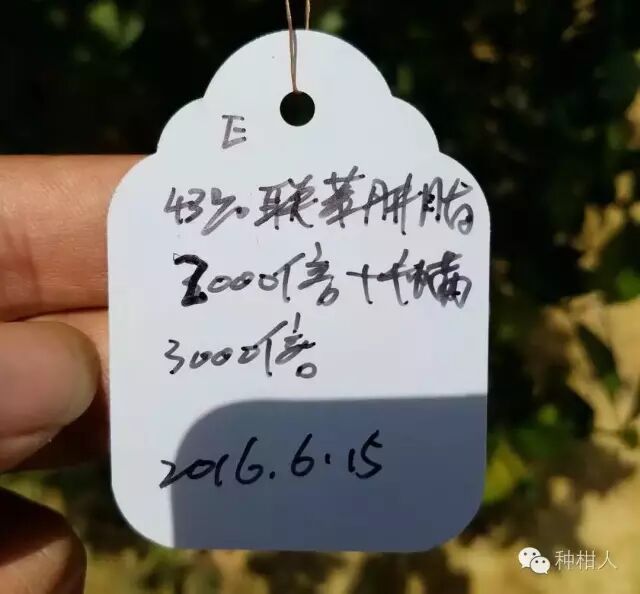 E
43%联苯肼脂
2000倍+
3000倍
2016.6.15
种柑人